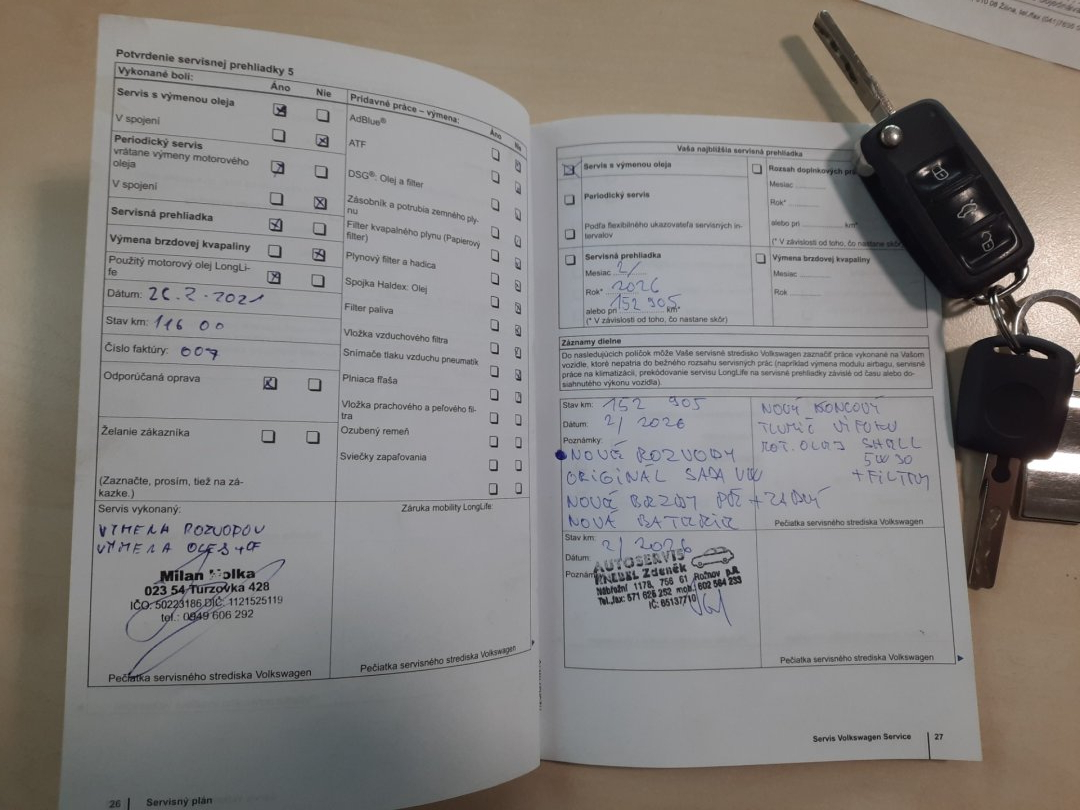 Potvrdenie servisnej prehliadky 5
Vykonané boli:
Áno
Nie
Servis s výmenou oleja
V spojení
Periodický servis
vrátane výmeny motorového
oleja
V spojení
Servisná prehliadka
Výmena brzdovej kvapaliny
Použitý motorový olej LongLi-
fe
Dátum: 2021
Stav km: 116 00
Číslo faktúry: 007
Odporúčaná oprava
Želanie zákazníka
(Zaznačte, prosím, tiež na zá-
kazke.)
Servis vykonaný:
VÝMENA ROZVODOV
VÝMENA
Milan
023 54 Turzovka 428
IČO: 50223186 DIČ: 1121525119
tel.: 0949 606 292
Pečiatka servisného strediska Volkswagen
Prídavné práce – výmena:
Áno
AdBlue®
ATF
DSG®: Olej a filter
Zásobník a potrubia zemného ply-
nu
Filter kvapalného plynu (Papierový
filter)
Plynový filter a hadica
Spojka Haldex: Olej
Filter paliva
Vložka vzduchového filtra
Snímače tlaku vzduchu pneumatík
Plniaca fľaša
Vložka prachového a peľového fil-
tra
Ozubený remeň
Sviečky zapaľovania
Záruka mobility LongLife:
Pečiatka servisného strediska Volkswagen
26 Servisný plán
Vaša najbližšia servisná prehliadka
Servis s výmenou oleja
Periodický servis
Podľa flexibilného ukazovateľa servisných in-
tervalov
Servisná prehliadka
Mesiac 2/
Rok* 2026
alebo pri 152 905 km*
(* V závislosti od toho, čo nastane skôr)
Rozsah doplnkových
Mesiac
Rok*
alebo pri km*
(* V závislosti od toho, čo nastane skôr)
Výmena brzdovej kvapaliny
Mesiac
Rok
Záznamy dielne
Do nasledujúcich políčok môže Vaše servisné stredisko Volkswagen zaznačiť práce vykonané na Vašom
vozidle, ktoré nepatria do bežného rozsahu servisných prác (napríklad výmena modulu airbagu, servisné
práce na klimatizácii, prekódovanie servisu LongLife na servisné prehliadky závislé od času alebo do-
siahnutého výkonu vozidla).
Stav km: 152 905
Dátum: 2/ 2026
Poznámky:
NOVÉ ROZVODY
ORIGINÁL SADA VW
NOVÉ BRZDY PŘ + ZADNÍ
NOVÁ BATERIE
NOVÝ KONCOVÝ
TLUMIČ VÝFUKU
MOT. OLEJ SHELL
5W30
+ FILTRY
Pečiatka servisného strediska Volkswagen
Stav km:
Dátum: 2/ 2026
AUTOSERVIS
KNEBEL Zdeněk
Nábřežní 1178, 756 61 Rožnov p.R.
Tel./fax: 571 626 252 mob.: 602 584 233
IČ: 65137710
Pečiatka servisného strediska Volkswagen
Servis Volkswagen Service 27